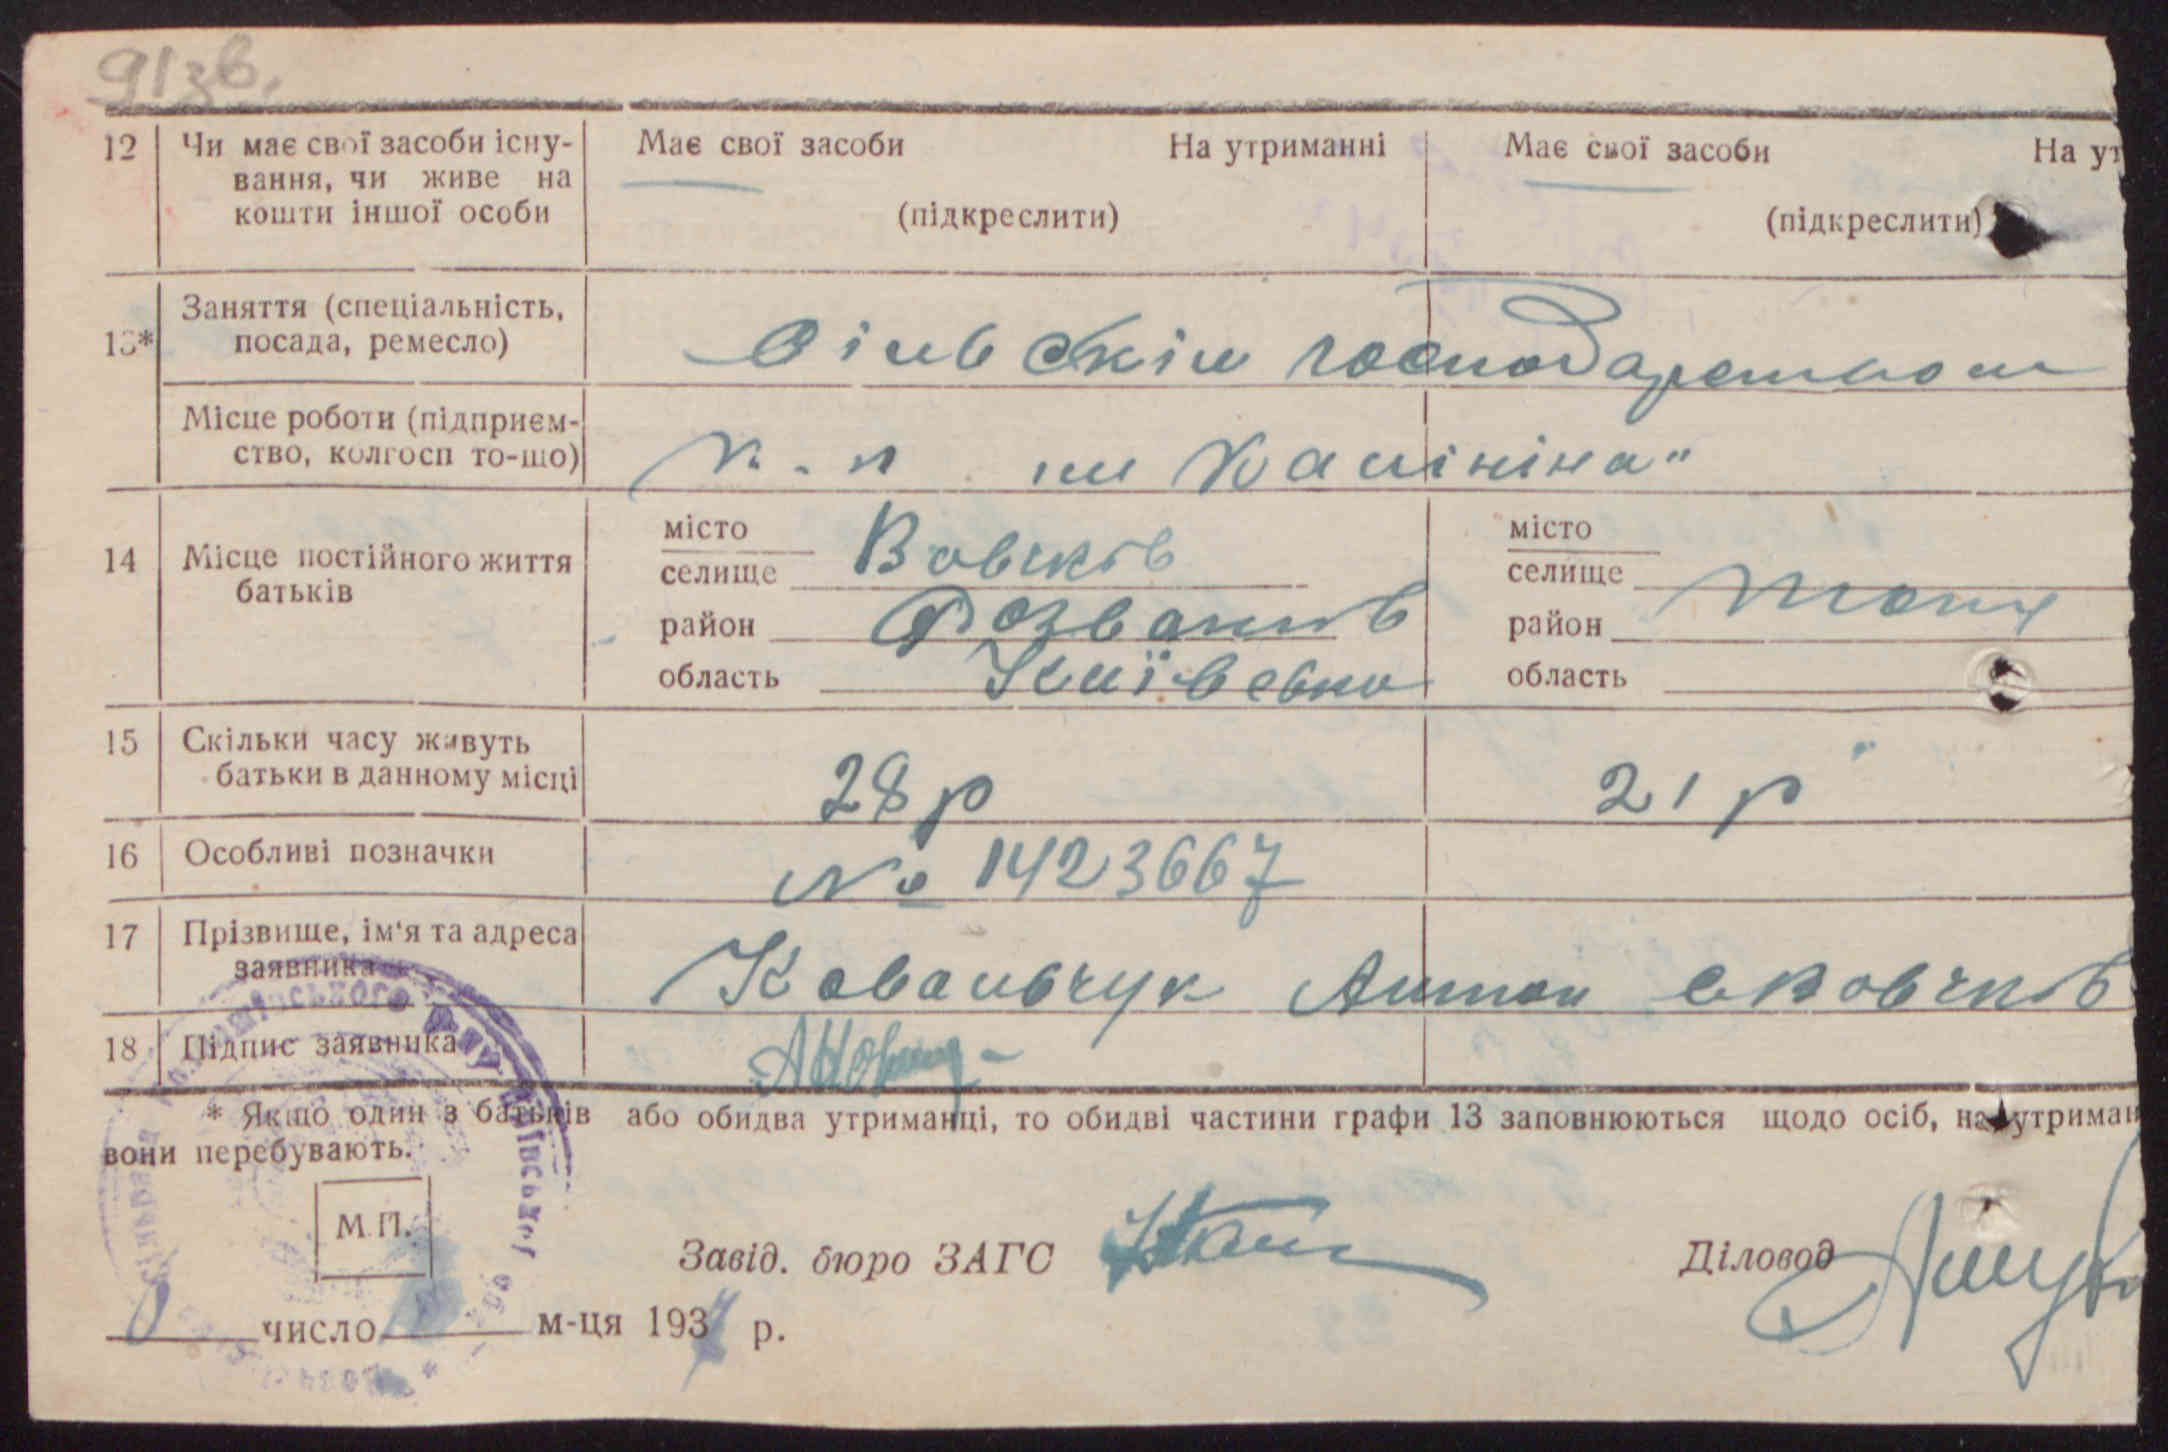 91зв.
12 Чи має свої засоби існу- Має свої засоби На утриманні Має свої засоби На ут
вання, чи живе на
кошти іншої особи (підкреслити) (підкреслити)
Заняття (спеціальність,
13* посада, ремесло) Сільскім господарством
Місце роботи (підприєм-
ство, колгосп то-що) к. г. ім Калініна"
місто Вовчків місто
14 Місце постійного життя селище селище тоже
батьків район район
область Київсько область
15 Скільки часу живуть
батьки в данному місці 28 р 21 р
16 Особливі позначки № 1423667
17 Прізвище, ім'я та адреса
заявника Ковальчук Антон с Вовчків
18 Підпис заявника
* Якщо один з батьків або обидва утриманці, то обидві частини графи 13 заповнюються щодо осіб, на утриман
вони перебувають.
М.П.
Завід. бюро ЗАГС Діловод
число м-ця 193 р.